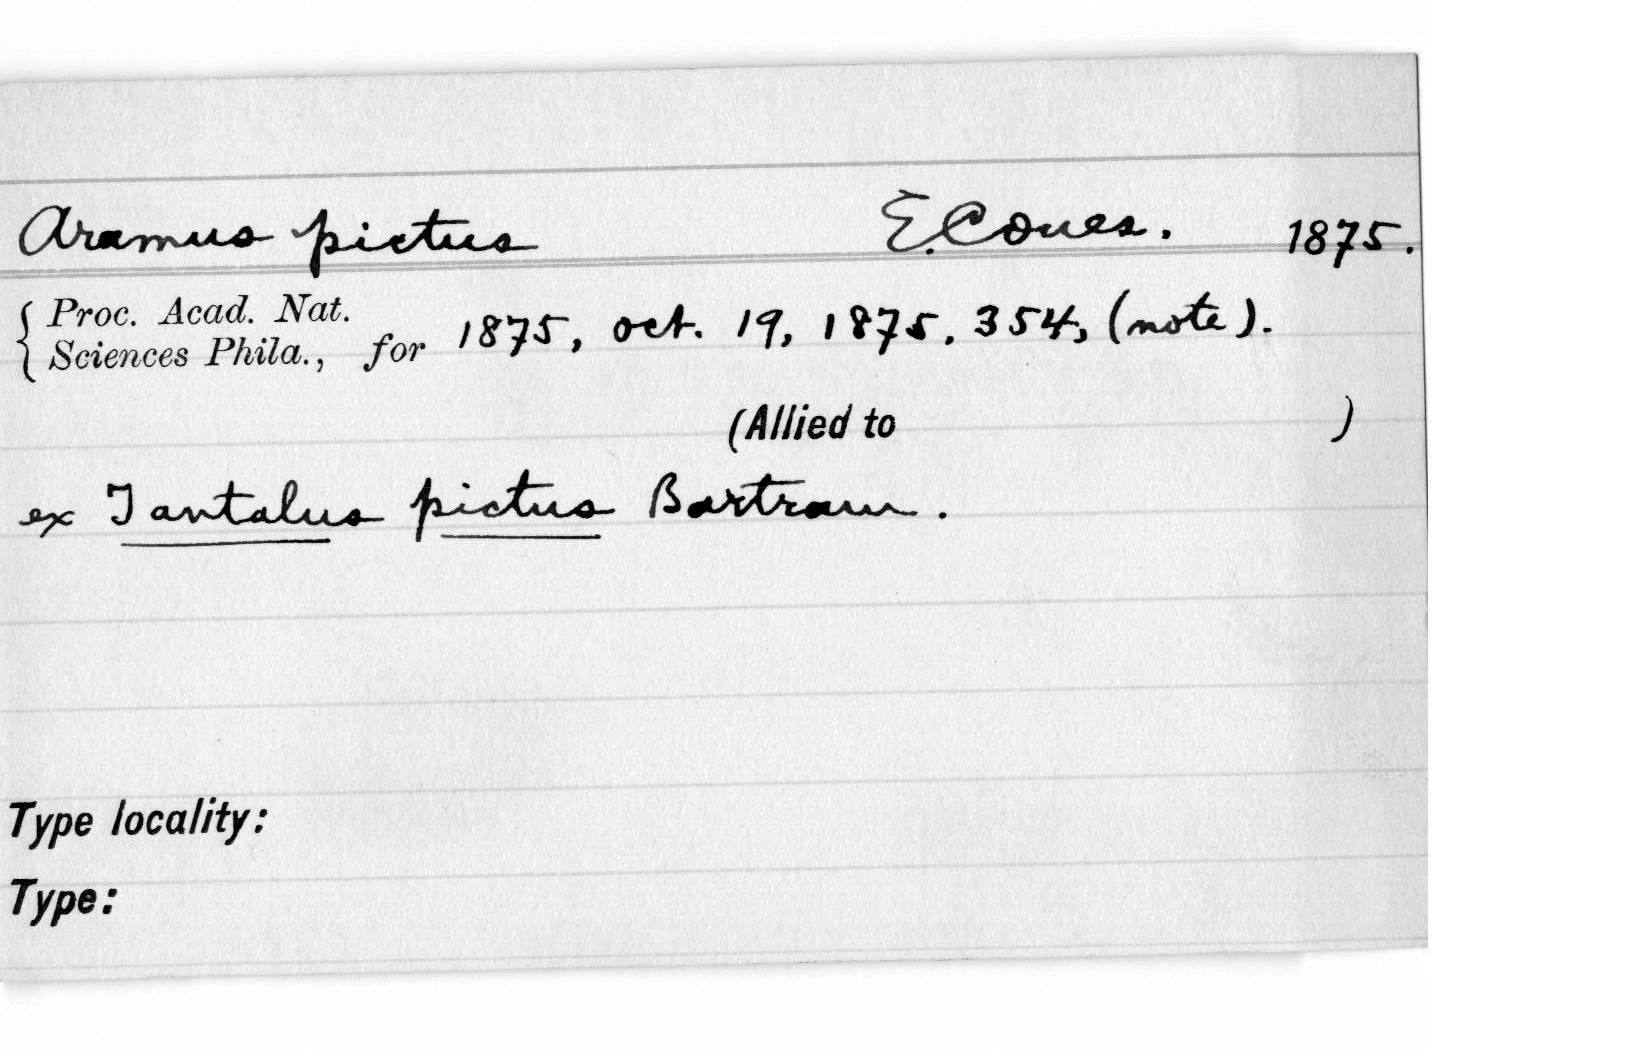 Aramus pictus E. Coues. 1875.
{ Proc. Acad. Nat.
Sciences Phila., for 1875, oct. 19, 1875, 354, (note).
(Allied to )
ex Tantalus pictus Bartram.
Type locality:
Type: